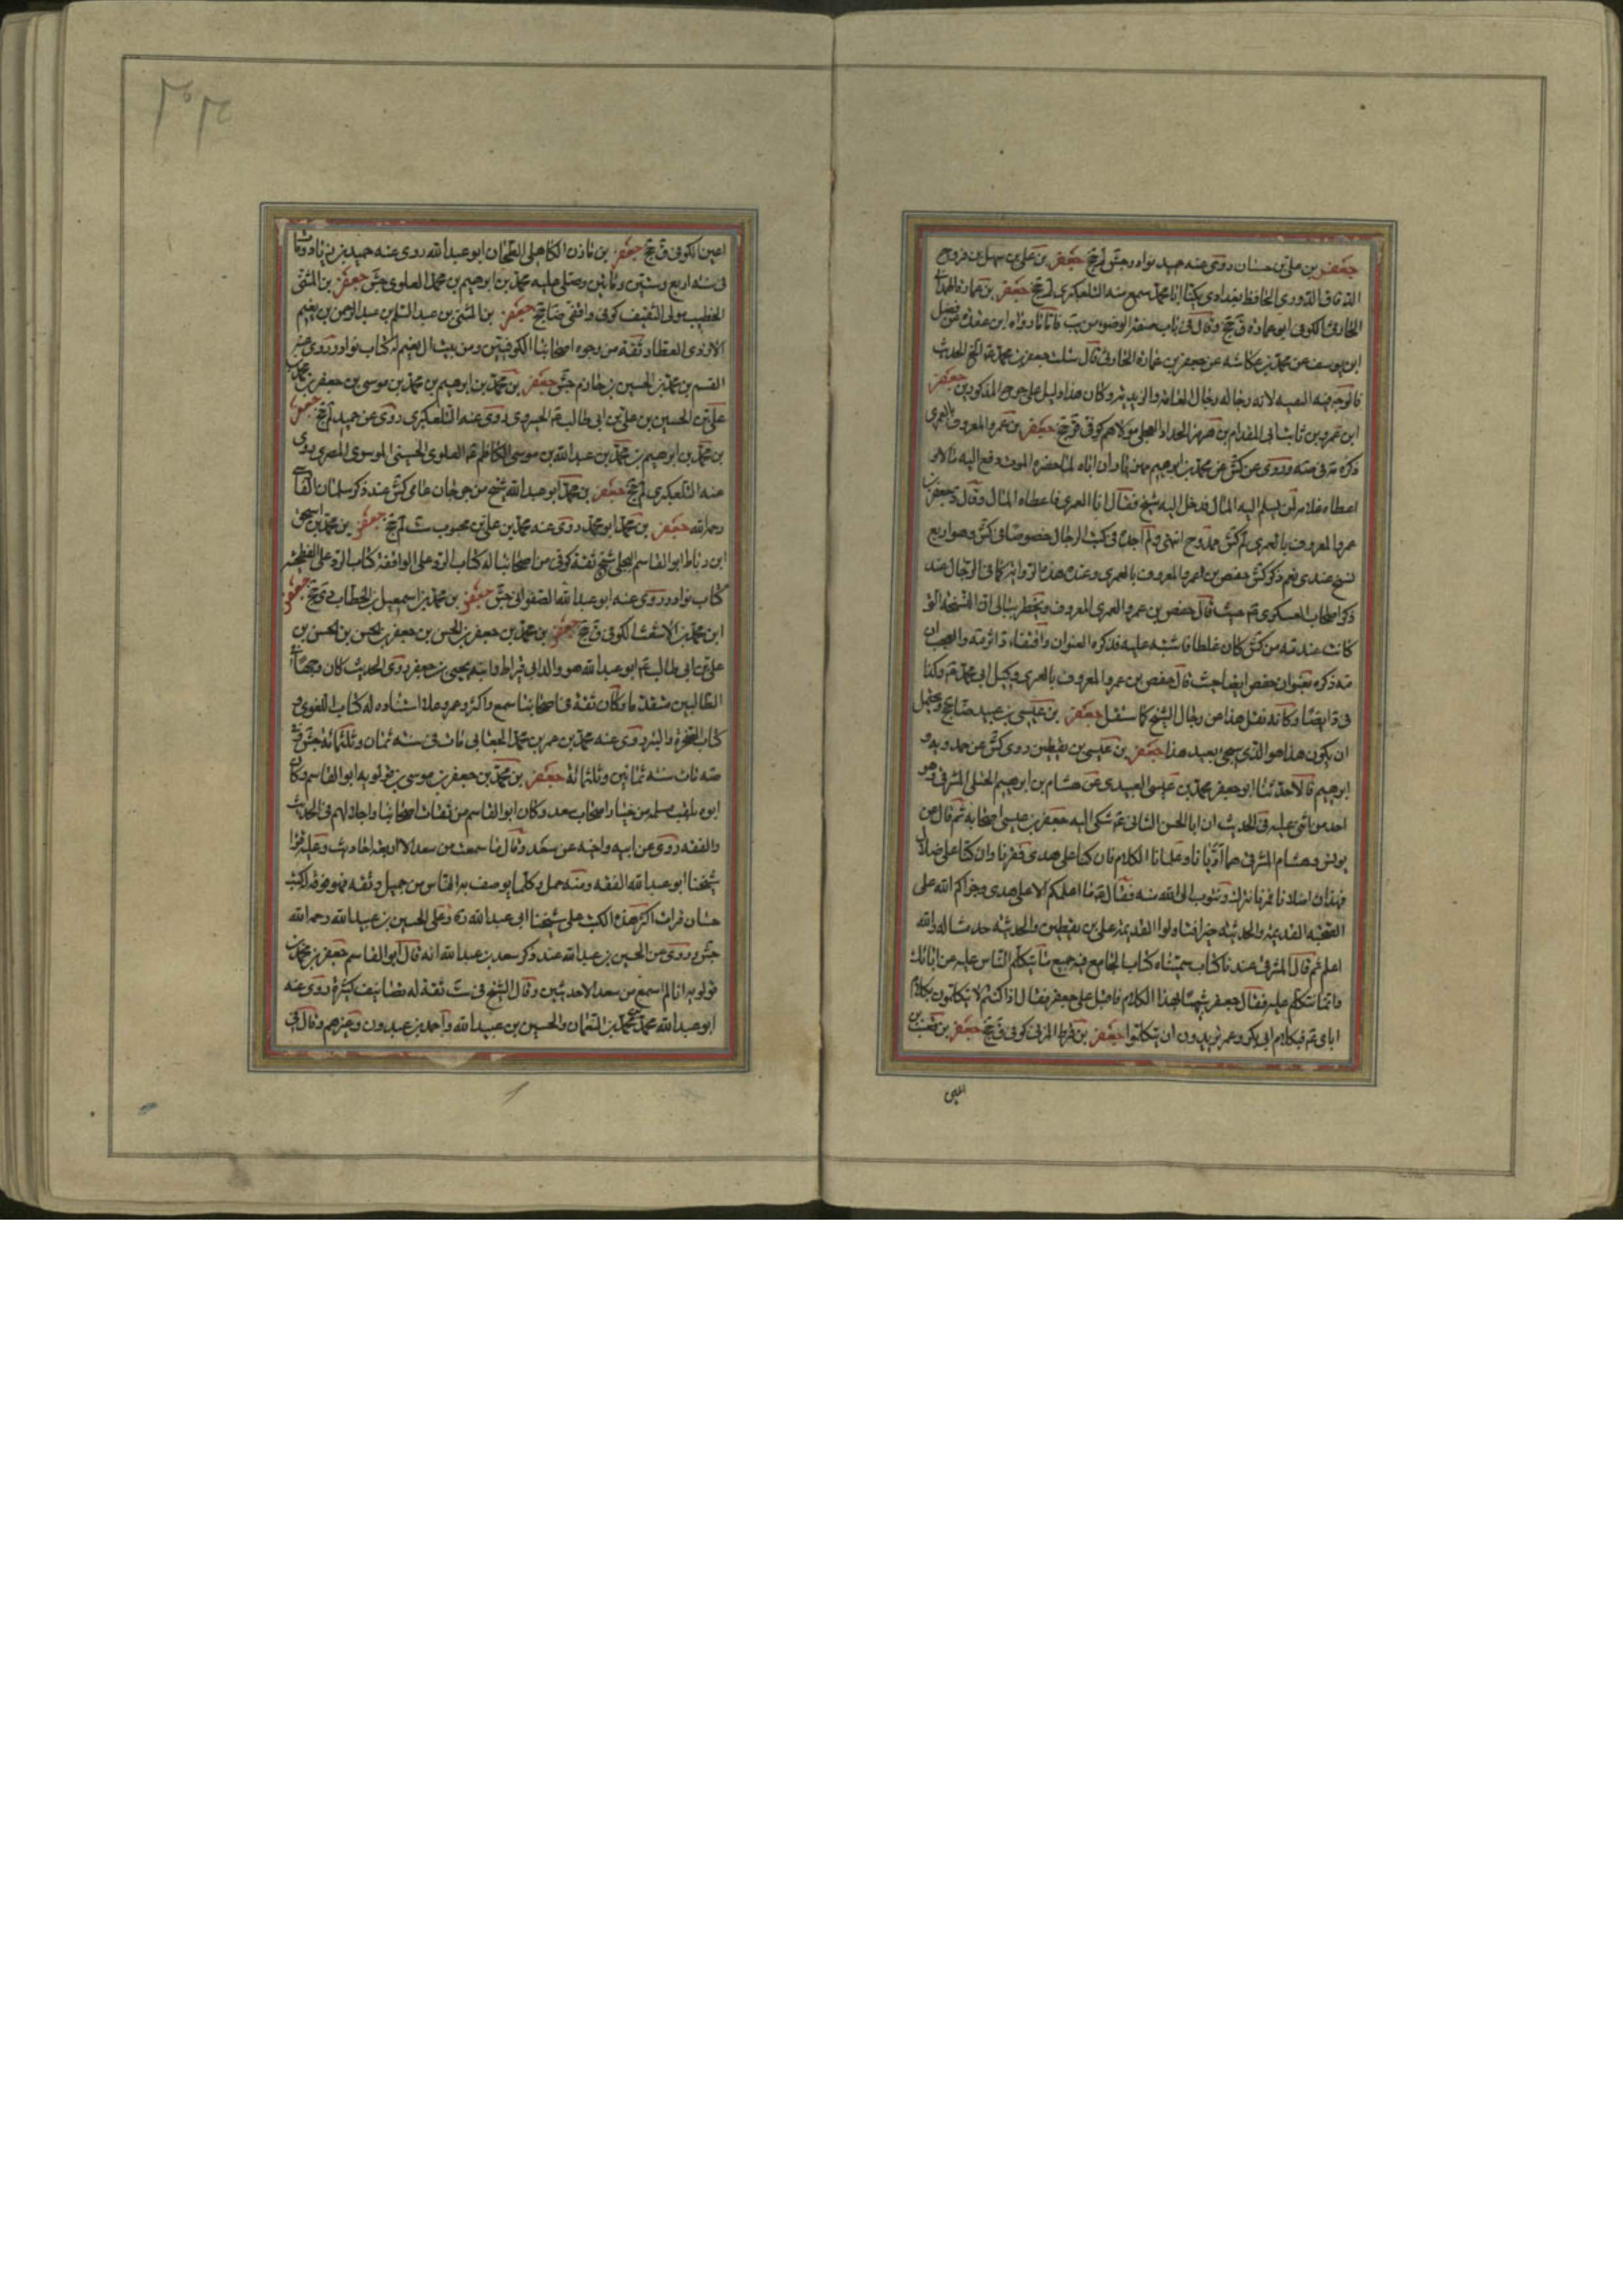 جعفر بن علي بن حسان روى عنه حميد نوادر جش لم جخ جعفر بن علي بن سهل بن فروخ
الدقاق الدوري الحافظ بغدادي يكنى ابا محمد سمع منه التلعكبري لم جخ جعفر بن عمارة الهمداني
الخارفي الكوفي ابو عمارة ق جخ وقال في باب صفة الوضوء من يب فاما ما رواه ابن عقدة عن فضل
ابن يوسف عن محمد بن عكاشة عن جعفر بن عمارة الخارفي قال سئلت جعفر بن محمد ع الخ الحديث
فالوجه فيه التقية لانه رجاله رجال العامة والزيدية وكان هذا دليل على جرح المذكورين جعفر
ابن عمرو بن ثابت ابي المقدام بن هرمز الحداد العجلي مولاهم كوفي ق جخ جعفر بن عمرو المعروف بالعمري
ذكره في صه وروى عن كش عن محمد بن ابرهيم بن مهزيار ان اباه لما حضره الموت دفع اليه مالا و
اعطاه علامة لمن يسلم اليه المال فدخل اليه شيخ فقال انا العمري فاعطاه المال وقال د جعفر بن
عمرو المعروف بالعمري لم كش ممدوح انتهى ولم اجده في كتب الرجال خصوصا في كش وهو اربع
نسخ عندي نعم ذكر كش حفص بن عمرو المعروف بالعمري وعنده هذه الرواية كما في الرجال عند
ذكر اصحاب العسكري ع حيث قال حفص بن عمرو العمري المعروف ويخطر ببالي ان النسخة التي
كانت عند صه من كش كان غلطا فاشتبه عليه فذكره العنوان واقتفاء د اثر صه والعجب ان
صه ذكره بعنوان حفص ايضا حيث قال حفص بن عمرو المعروف بالعمري وكيل ابي محمد ع وكذا
في د ايضا وكانه نقل هذا من رجال الشيخ كما سنقل جعفر بن عيسى بن عبيد ضا جخ ويحتمل
ان يكون هذا هو الذي يجيء بعيد هذا جعفر بن عيسى بن يقطين روى كش عن حمدويه و
ابرهيم قالا حدثنا ابو جعفر محمد بن عيسى العبيدي عن هشام بن ابرهيم الختلي المشرقي وهو
احد من اثنى عليه في الحديث ان ابا الحسن الثاني ع شكى اليه جعفر بن عيسى اصحابه ثم قال من
يونس وهشام المشرقي هما ادبانا وعلمانا الكلام فان كنا على هدى ففزنا وان كنا على ضلال
فهذان اضلانا فمرنا نتركه ونتوب الى الله منه فقال ع ما اعلمكم الا على هدى وجزاكم الله على
الصحبة القديمة والحديثة خيرا فتاولوا القديمة علي بن يقطين والحديثة خدمتنا له والله
اعلم ثم قال المشرقي عندنا كتاب سميناه كتاب الجامع فيه جميع ما يتكلم الناس عليه من ابائك
وانما نتكلم عليه فقال جعفر شبها بهذا الكلام فاقبل على جعفر فقال اذا كنتم لا تتكلمون بكلام
ابائي ع فبكلام ابي بكر وعمر تريدون ان تتكلموا جعفر بن قرط المزني كوفي ق جخ جعفر بن قعنب بن
اعين
اعين الكوفي ق جخ جعفر بن مازن الكاهلي الطحان ابو عبد الله روى عنه حميد بن زياد ومات
في سنة اربع وستين ومائتين وصلى عليه محمد بن ابرهيم بن محمد العلوي جش جعفر بن المثنى
الخطيب مولى لثقيف كوفي واقفي ضا جخ جعفر بن المثنى بن عبد السلم بن عبد الرحمن بن نعيم
الازدي العطار ثقة من وجوه اصحابنا الكوفيين ومن بيت ال نعيم له كتاب نوادر روى عنه
القسم بن محمد بن الحسين بن خازم جش جعفر بن محمد بن ابرهيم بن محمد بن موسى بن جعفر بن محمد بن
علي بن الحسين بن علي بن ابي طالب ع الحيري روى عنه التلعكبري روى عن حميد لم جخ جعفر
بن محمد بن ابرهيم بن محمد بن عبد الله بن موسى الكاظم ع العلوي الحسيني الموسوي المصري روى
عنه التلعكبري لم جخ جعفر بن محمد ابو عبد الله شيخ من جرجان عامي كش عند ذكر سلمان الفارسي
رحمه الله جعفر بن محمد ابو محمد روى عنه محمد بن علي بن محبوب ست لم جخ جعفر بن محمد بن اسحق
ابن رباط ابو القاسم البجلي شيخ ثقة كوفي من اصحابنا له كتاب الرد على الواقفة كتاب الرد على الفطحية
كتاب نوادر روى عنه ابو عبد الله الصفواني جش جعفر بن محمد بن اسمعيل بن الخطاب دي جخ جعفر
ابن محمد بن الاشعث الكوفي ق جخ جعفر بن محمد بن جعفر بن الحسن بن جعفر بن الحسن بن الحسن بن
علي بن ابي طالب ع ابو عبد الله هو والد ابي قيراط وابنه يحيى بن جعفر روى الحديث كان وجها في
الطالبيين متقدما وكان ثقة في اصحابنا سمع واكثر وعمر وعلا اسناده له كتاب التاريخ العلوي و
كتاب الصخرة والبئر روى عنه محمد بن عمر بن محمد الجعابي مات في سنة ثمان وثلثمائة جش في
صه مات سنة ثمانين وثلثمائة جعفر بن محمد بن جعفر بن موسى بن قولويه ابو القاسم وكان
ابوه يلقب مسلمة من خيار اصحاب سعد وكان ابو القاسم من ثقات اصحابنا واجلائهم في الحديث
والفقه روى عن ابيه واخيه عن سعد وقال ما سمعت من سعد الا اربعة احاديث وعليه قرا
شيخنا ابو عبد الله الفقه ومنه حمل وكلما يوصف به الناس من جميل وثقه فهو فوقه له كتب
حسان قرات اكثر هذه الكتب على شيخنا ابي عبد الله ره وعلى الحسين بن عبيد الله رحمه الله
جش وروى عن الحسين بن عبيد الله عند ذكر سعد بن عبد الله انه قال ابو القاسم جعفر بن محمد بن
قولويه انا لم اسمع من سعد الا حديثين وقال الشيخ في ست ثقة له تصانيف كثيرة روى عنه
ابو عبد الله محمد بن محمد بن النعمان والحسين بن عبيد الله واحمد بن عبدون وغيرهم وقال في